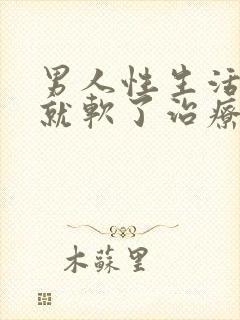 男人性生活
就軟了治療
木蘇里